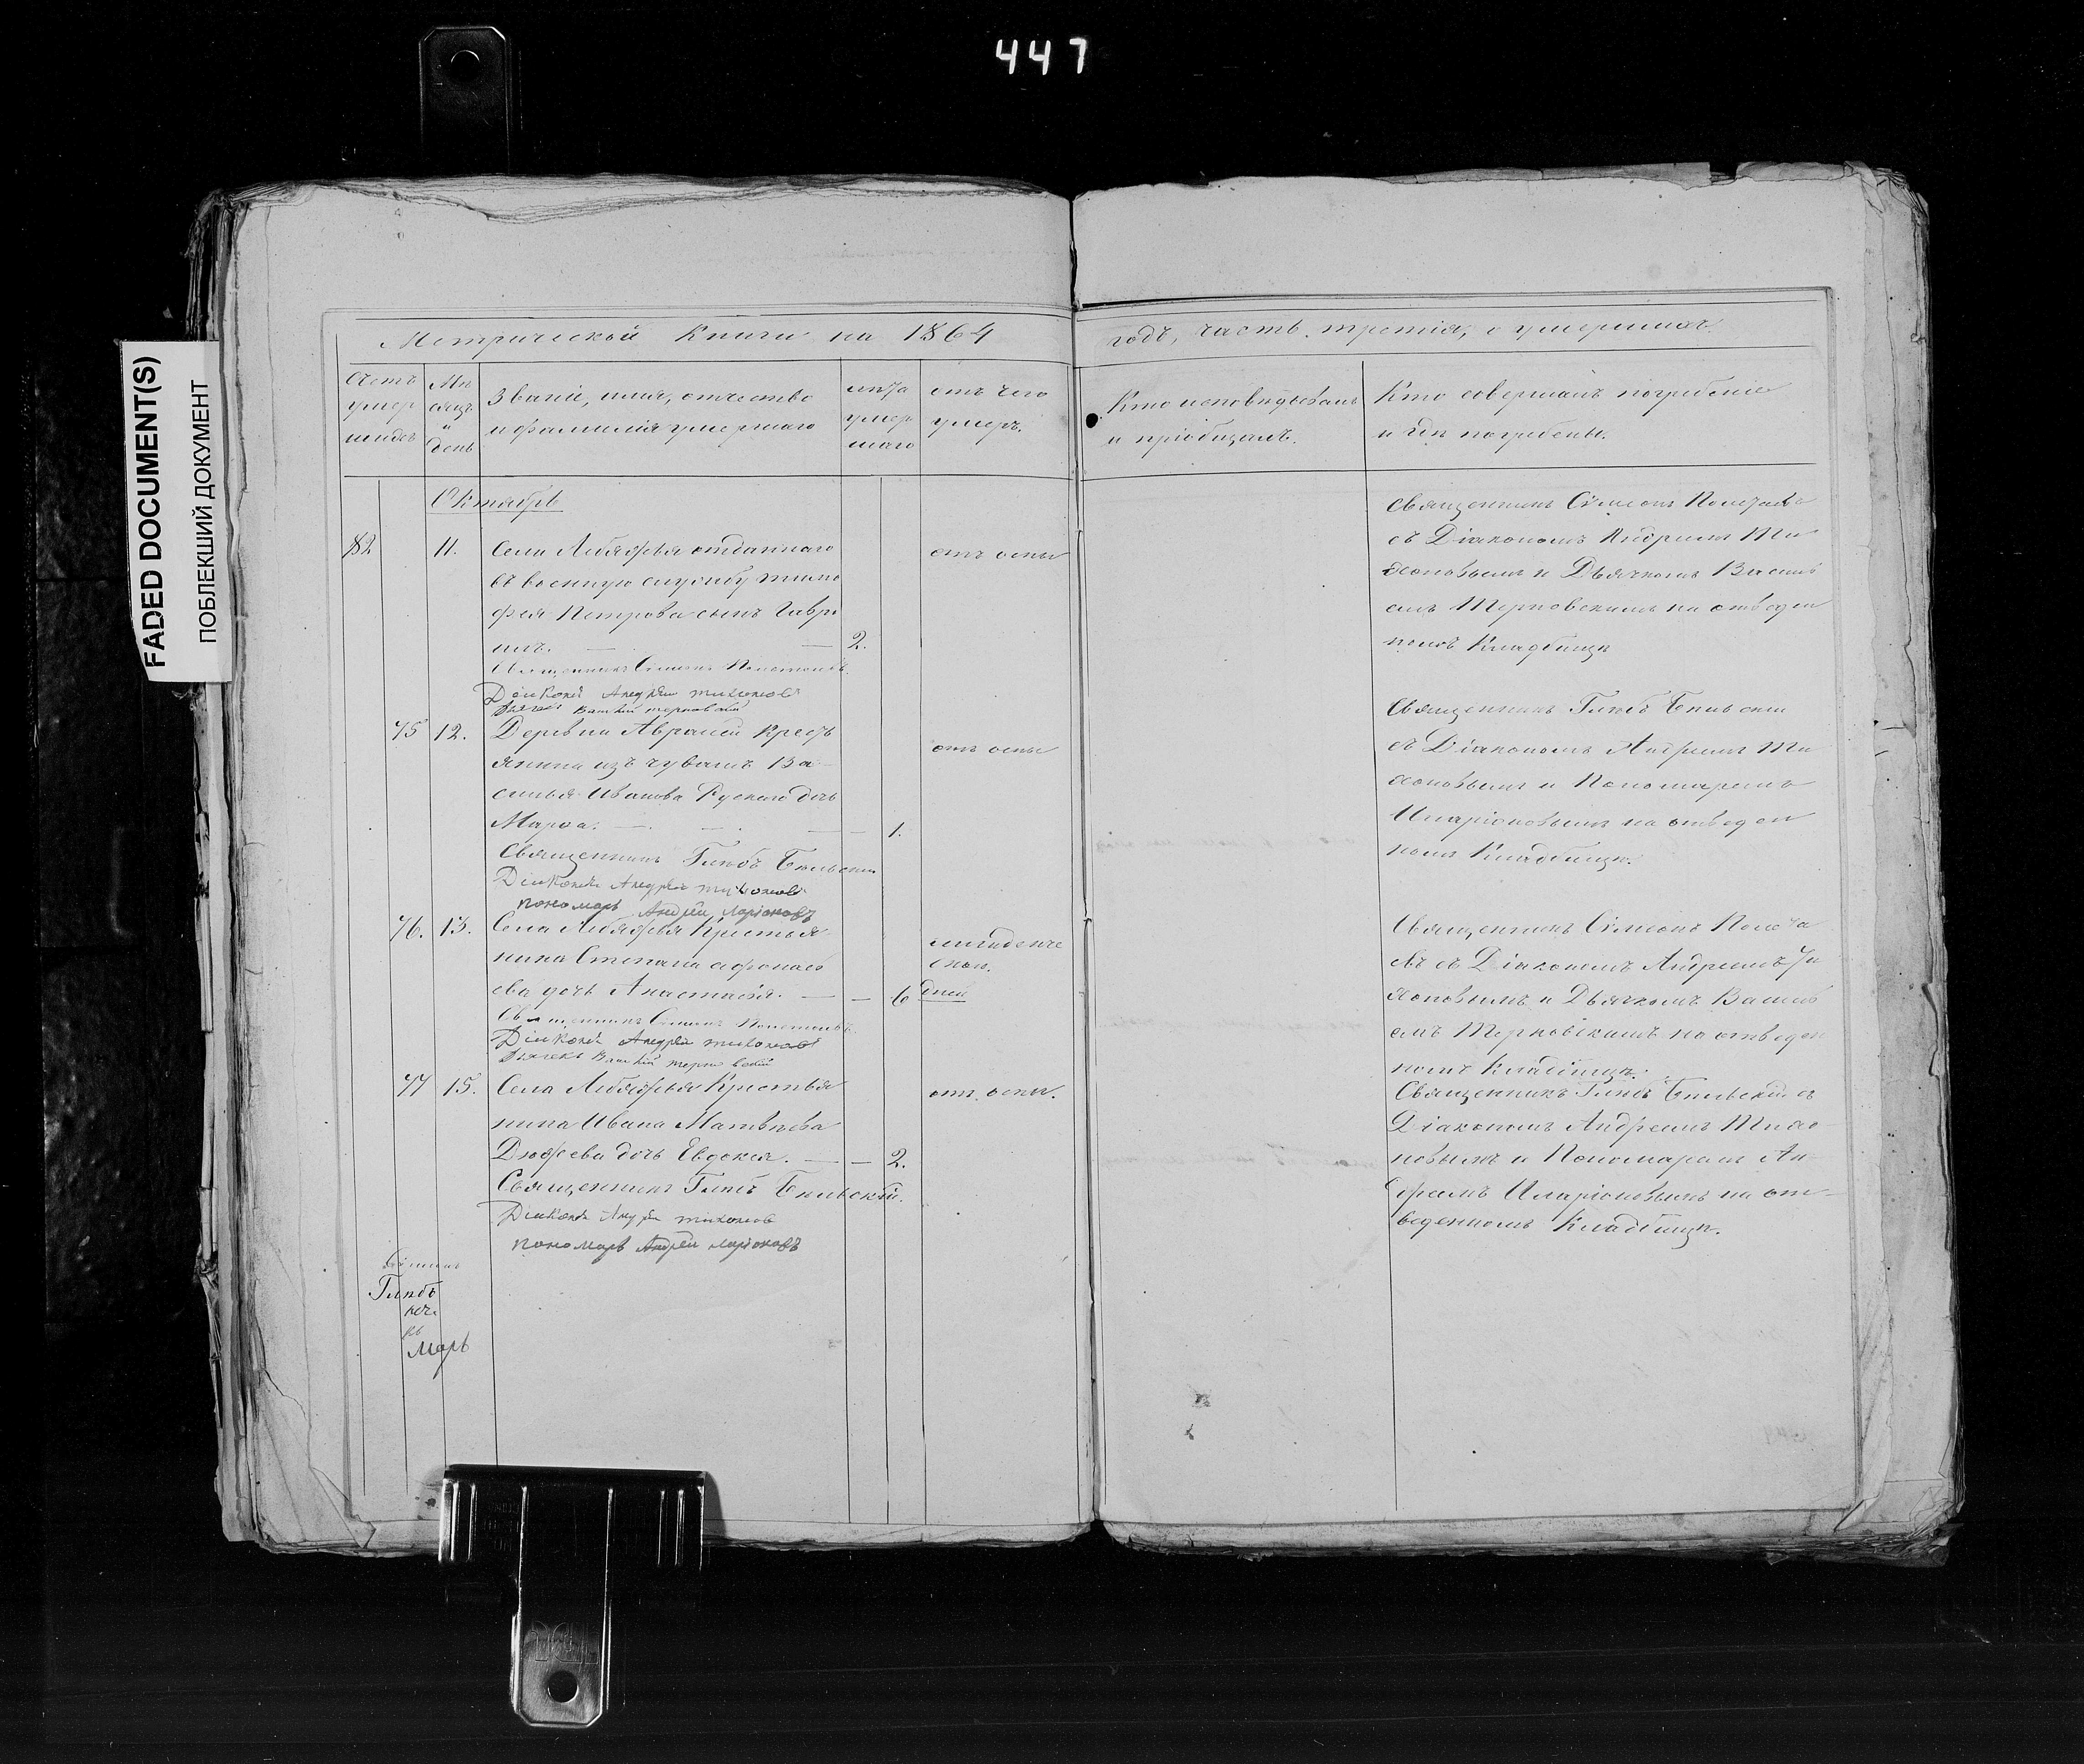 447
FADED DOCUMENT(S)
ПОБЛЕКШИЙ ДОКУМЕНТ
Метрической Книги на 1864
годъ, часть третiя, о умершихъ.
Счетъ умер шихъ
Мѣ сяцъ и день
Званiе, имя, отчество
и фамилiя умершаго
лѣта умер шаго
отъ чего
умеръ.
Кто исповѣдывалъ
и прiобщалъ.
Кто совершалъ погребенiе
и гдѣ погребены.
Октябрь
82 11.
Села Лебяжья отданнаго
въ военную службу Тимо
фея Петрова сынъ Гаврi
илъ. — — 2.
отъ оспы
Священникъ Сѵмеонъ
Дiаконъ Андрей Тихоновъ
Дьячекъ Василiй Терновскiй
Священникъ Сѵмеонъ
съ Дiакономъ Андреемъ Ти
хоновымъ и Дьячкомъ Василi
емъ Терновскимъ на отведен
номъ Кладбищѣ
75 12.
Деревни Авралей Кресть
янина изъ чувашъ Ва-
силья Иванова Рускаго дочь
Марѳа. — — — 1.
отъ оспы
Священникъ Глѣбъ Бѣльскiй
Дiаконъ Андрей Тихоновъ
Пономарь Андрей Ларiоновъ
Священникъ Глѣбъ Бѣльскiй
съ Дiакономъ Андреемъ Ти
хоновымъ и Пономаремъ
Иларiоновымъ на отведен
номъ Кладбищѣ.
76. 13.
Села Лебяжья Крестья
нина Степана Афонась
ева дочь Анастасiя. — — 6 дней
младенче
ской.
Священникъ Сѵмеонъ
Дiаконъ Андрей Тихоновъ
Дьячекъ Василiй Терновскiй
Священникъ Сѵмеонъ
въ съ Дiакономъ Андреемъ Ти
хоновымъ и Дьячкомъ Василi
емъ Терновскимъ на отведен
номъ Кладбищѣ.
77 15.
Села Лебяжья Крестья
нина Ивана Матвѣева
дочь Евдокiя. — — 2.
отъ оспы.
Священникъ Глѣбъ Бѣльскiй.
Дiаконъ Андрей Тихоновъ
Пономарь Андрей Ларiоновъ
Священникъ Глѣбъ Бѣльскiй съ
Дiакономъ Андреемъ Тихо-
новымъ и Пономаремъ Ан-
дреемъ Иларiоновымъ на от-
веденномъ Кладбищѣ.
Сѵмеонъ
Глѣбъ
марь